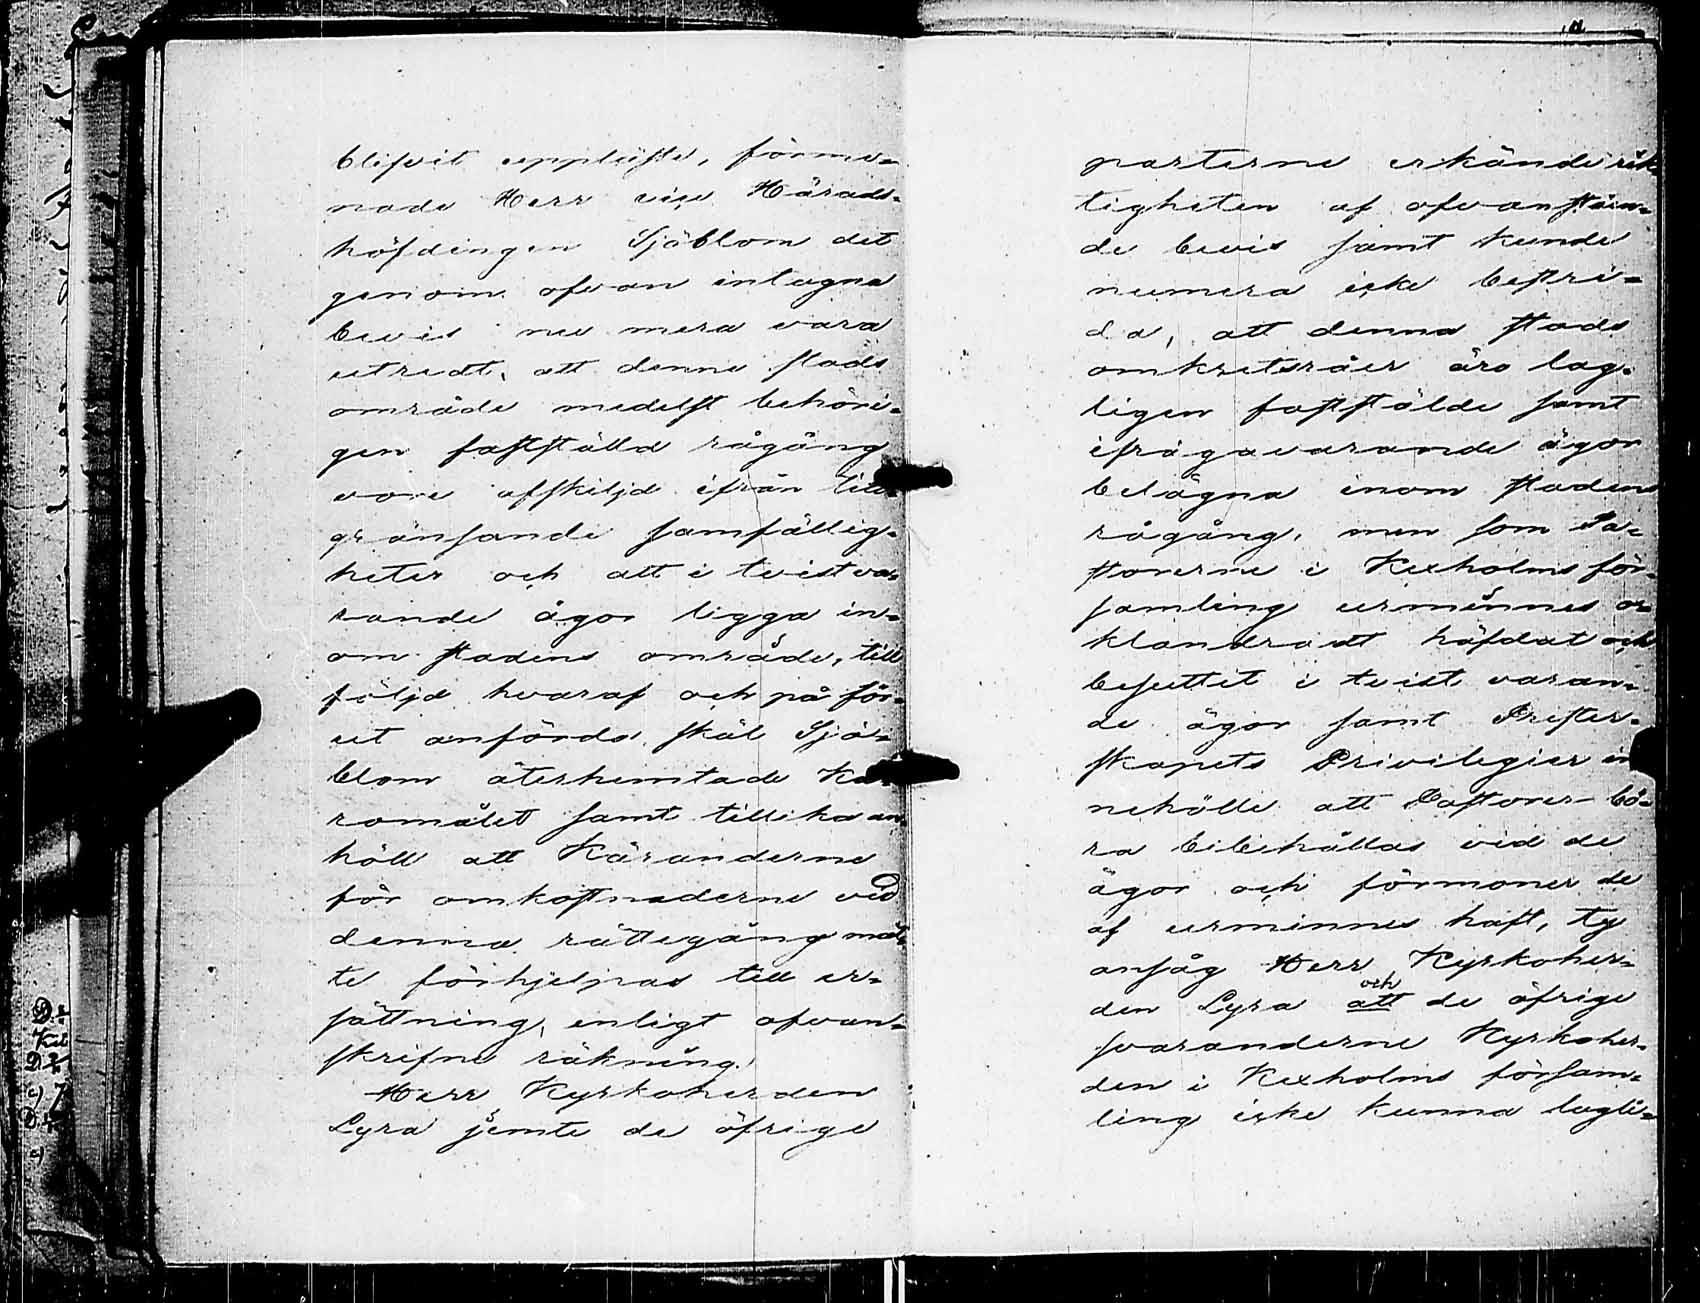 blifvit uppläste, förme-
nade Herr vice Härads-
höfdingen Sjöblom det
genom ofvan intagna
bevis nu mera vara
utredt, att denne stads
område medelst behöri-
gen fastställd rågång
vore afskiljd ifrån till-
gränsande samfällig-
heter och att i tvist va-
rande ägor ligga in-
om stadens område, till
följd hvaraf och på för-
ut anförda skäl Sjö-
blom återhemtade Kä-
romålet samt tillika an-
höll att Käranderne
för omkostnaderne vid
denna rättegång måt-
te förhjelpas till er-
sättning, enligt ofvan-
skrifne räkning.
Herr Kyrkoherden
Lyra jemte de öfrige
parterne erkände rik-
tigheten af ofvanståen-
de bevis samt kunde
numera icke bestri-
da, att denna stads
omkretsråer äro lag-
ligen fastställde samt
ifrågavarande ägor
belägna inom stadens
rågång, men som Pa-
storerne i Kexholms för-
samling urminnes o-
klandradt häfdat och
besuttit i tvist varan-
de ägor samt Prester-
skapets Privilegier in
nehölle att Pastorer bö-
ra bibehållas vid de
ägor och förmoner de
af urminnes haft, ty
ansåg Herr Kyrkoher-
den Lyra att och de öfrige
svaranderne Kyrkoher-
den i Kexholms försam-
ling icke kunna lagli-